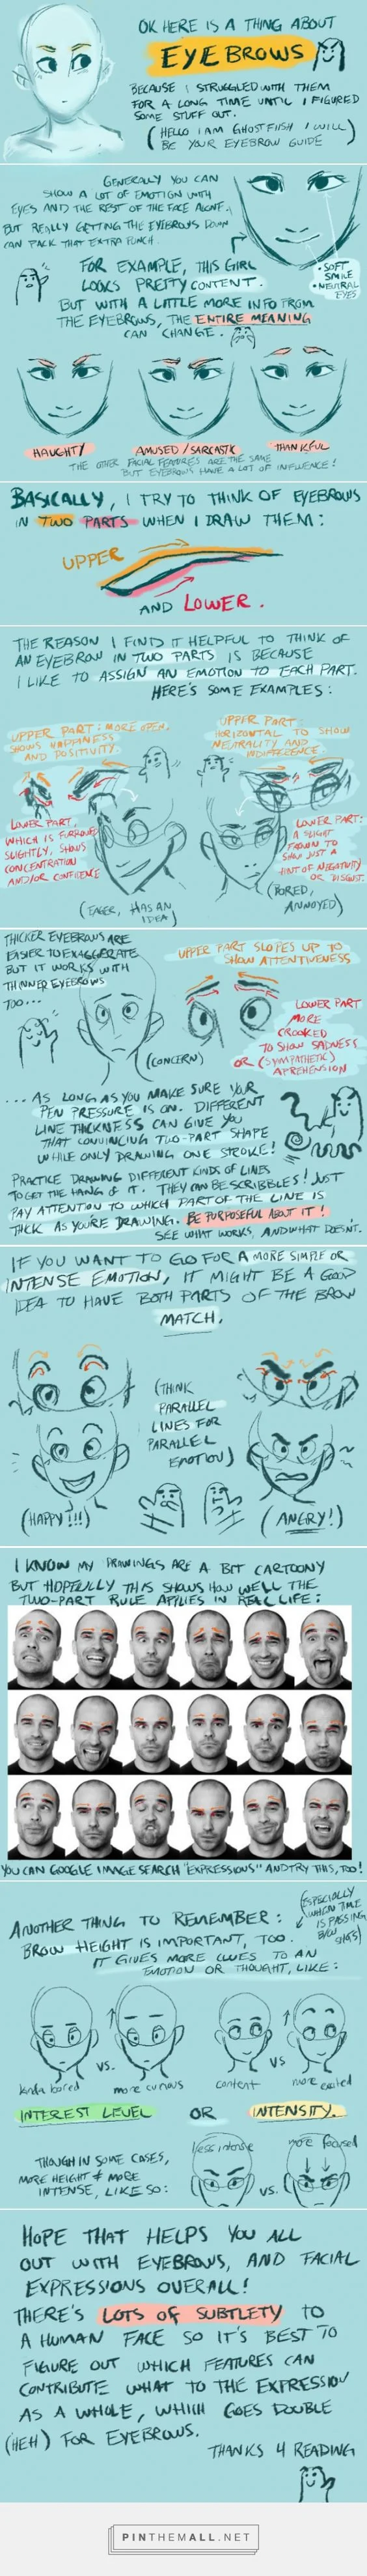 OK HERE IS A THING ABOUT
EYEBROWS
BECAUSE I STRUGGLED WITH THEM
FOR A LONG TIME UNTIL I FIGURED
SOME STUFF OUT.
(HELLO I AM GHOST FISH I WILL
BE YOUR EYEBROW GUIDE)
GENERALLY YOU CAN
SHOW A LOT OF EMOTION WITH
EYES AND THE REST OF THE FACE ALONE.
BUT REALLY GETTING THE EYEBROWS DOWN
CAN PACK THAT EXTRA PUNCH.
FOR EXAMPLE, THIS GIRL
LOOKS PRETTY CONTENT.
• SOFT
SMILE
• NEUTRAL
EYES
BUT WITH A LITTLE MORE INFO FROM
THE EYEBROWS, THE ENTIRE MEANING
CAN CHANGE.
HAUGHTY
AMUSED/SARCASTIC
THANKFUL
THE OTHER FACIAL FEATURES ARE THE SAME
BUT EYEBROWS HAVE A LOT OF INFLUENCE!
BASICALLY, I TRY TO THINK OF EYEBROWS
IN TWO PARTS WHEN I DRAW THEM:
UPPER
AND LOWER.
THE REASON I FIND IT HELPFUL TO THINK OF
AN EYEBROW IN TWO PARTS IS BECAUSE
I LIKE TO ASSIGN AN EMOTION TO EACH PART.
HERE'S SOME EXAMPLES:
UPPER PART: MORE OPEN.
SHOWS HAPPINESS
AND POSITIVITY.
LOWER PART,
WHICH IS FURROWED
SLIGHTLY, SHOWS
CONCENTRATION
AND/OR CONFIDENCE
(EAGER, HAS AN
IDEA)
UPPER PART:
HORIZONTAL TO SHOW
NEUTRALITY AND
INDIFFERENCE.
LOWER PART:
A SLIGHT
FROWN TO
SHOW JUST A
HINT OF NEGATIVITY
OR DISGUST.
(BORED,
ANNOYED)
THICKER EYEBROWS ARE
EASIER TO EXAGGERATE
BUT IT WORKS WITH
THINNER EYEBROWS
TOO...
(CONCERN)
UPPER PART SLOPES UP TO
SHOW ATTENTIVENESS
LOWER PART
MORE
CROOKED
TO SHOW SADNESS
OR (SYMPATHETIC)
APREHENSION
... AS LONG AS YOU MAKE SURE YOUR
PEN PRESSURE IS ON. DIFFERENT
LINE THICKNESS CAN GIVE YOU
THAT CONVINCING TWO-PART SHAPE
WHILE ONLY DRAWING ONE STROKE!
PRACTICE DRAWING DIFFERENT KINDS OF LINES
TO GET THE HANG OF IT. THEY CAN BE SCRIBBLES! JUST
PAY ATTENTION TO WHICH PART OF THE LINE IS
THICK AS YOU'RE DRAWING. BE PURPOSEFUL ABOUT IT!
SEE WHAT WORKS, AND WHAT DOESN'T.
IF YOU WANT TO GO FOR A MORE SIMPLE OR
INTENSE EMOTION, IT MIGHT BE A GOOD
IDEA TO HAVE BOTH PARTS OF THE BROW
MATCH.
(THINK
PARALLEL
LINES FOR
PARALLEL
EMOTION)
(HAPPY!!!)
(ANGRY!)
I KNOW MY DRAWINGS ARE A BIT CARTOONY
BUT HOPEFULLY THIS SHOWS HOW WELL THE
TWO-PART RULE APPLIES IN REAL LIFE:
YOU CAN GOOGLE IMAGE SEARCH "EXPRESSIONS" AND TRY THIS, TOO!
ANOTHER THING TO REMEMBER:
BROW HEIGHT IS IMPORTANT, TOO.
(ESPECIALLY
WHEN TIME
IS PASSING
B/W
SHOTS)
IT GIVES MORE CLUES TO AN
EMOTION OR THOUGHT, LIKE:
VS.
VS
kinda bored
more curious
content
more excited
INTEREST LEVEL
OR
INTENSITY.
THOUGH IN SOME CASES,
MORE HEIGHT ≠ MORE
INTENSE, LIKE SO:
less intense
more focused
VS.
HOPE THAT HELPS YOU ALL
OUT WITH EYEBROWS, AND FACIAL
EXPRESSIONS OVERALL!
THERE'S LOTS OF SUBTLETY TO
A HUMAN FACE SO IT'S BEST TO
FIGURE OUT WHICH FEATURES CAN
CONTRIBUTE WHAT TO THE EXPRESSION
AS A WHOLE, WHICH GOES DOUBLE
(HEH) FOR EYEBROWS.
THANKS 4 READING
PINTHEMALL.NET